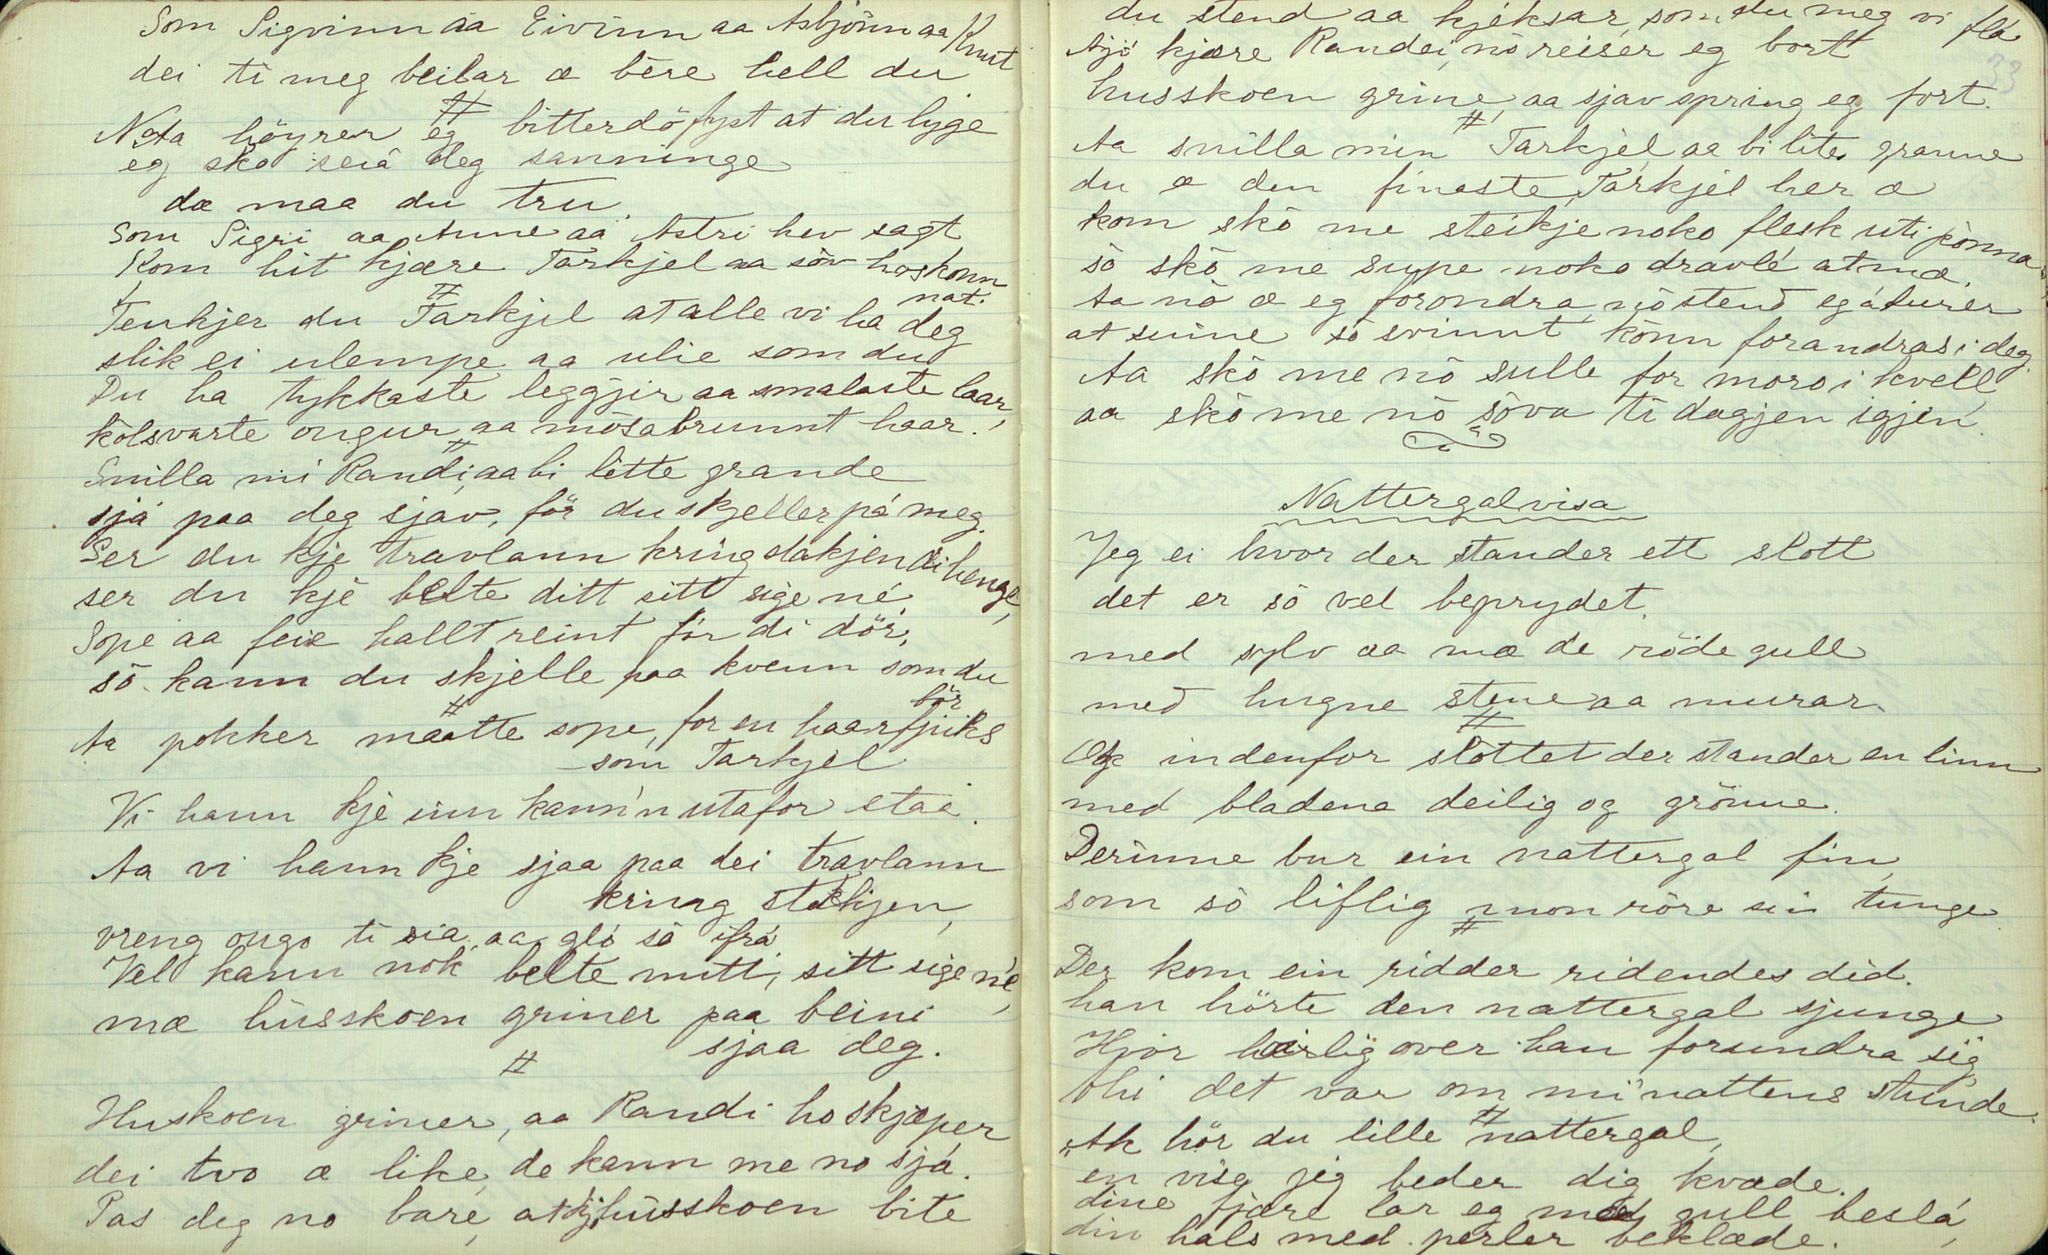 Som Sigvinn aa Eivinn aa Asbjönn aa Knut
dei ti meg beilar æ bere hell du
#
No höyrer eg bitterdö fyst at du lyge
eg sko seiâ deg sanninge
dæ maa du tru
Som Sigri aa Anne aa Astri hev sagt
Kom hit kjære Tarkjel aa söv hos konn
nat.
#
Tenkjer du Tarkjel at alle vi ha deg
slik ei ulempe aa ulie som du
Du ha tykkaste leggjir aa smalaste laar,
kölsvarte ougur aa mösabrunnt haar.
#
Snilla mi Randi, aa bi lette grande
sjá paa deg sjav, för du skjeller pá meg.
Ser du kje travlann kring stakjen di henge,
ser du kje belte ditt sitt sige né,
Sope aa feie hallt reint för di dör,
sö kann du skjelle paa kvenn som du
bör
#
Aa pokker maatte sope, for en haarfjuks
som Tarkjel
Vi hann kje inn kann'n utafor staa.
Aa vi hann kje sjaa paa dei travlann
kring stakjen,
vreng ougo ti sia, aa glo sö ifrá
Vel kann nok belte mitt, sitt sige né,
mæ husskoen griner paa beini
sjaa deg.
#
Huskoen griner, aa Randi ho skjæper
dei tvo æ like, de kann me no sjá.
Pas deg no bare, at husskoen bite
du stend aa kjéksar, som du meg vi flá
Ajö kjære Randei, nö reiser eg bort
husskoen grine, aa sjav spring eg fort.
#
Aa snilla min Tarkjel, aa bi lite granne
du æ den finaste Tarkjel her æ
kom skö me steikje noko flesk uti pönna
sö skö me supe noko dravle atmæ.
Aa nö æ eg forondra, nö stend eg á lurer
at suine sö svinnt könn forandras i deg.
Aa skö me nö sulle for moro i kvell,
aa skö me nö söva ti dagjen igjen.
Nattergalvisa
Jeg ei hvor der stander ett slott
det er sö vel beprydet,
med sylv aa mæ de röde gull
med hugne stene aa murar.
#
Og indenfor slottet der stander en linn
med bladene deilig og grönne.
Derinne bur ein nattergal fin,
som sö liflig mon röre sin tunge
#
Der kom ein ridder ridendes did.
han hörte den nattergal sjunge
Hvor hærlig over han forundra sig,
thi det var om mi'nattens stunde.
#
"Ak hör du lille nattergal,
en vise jeg beder dig kvæde.
dine fjære lar eg med gull beslá,
din hals med perler beklæde.
33